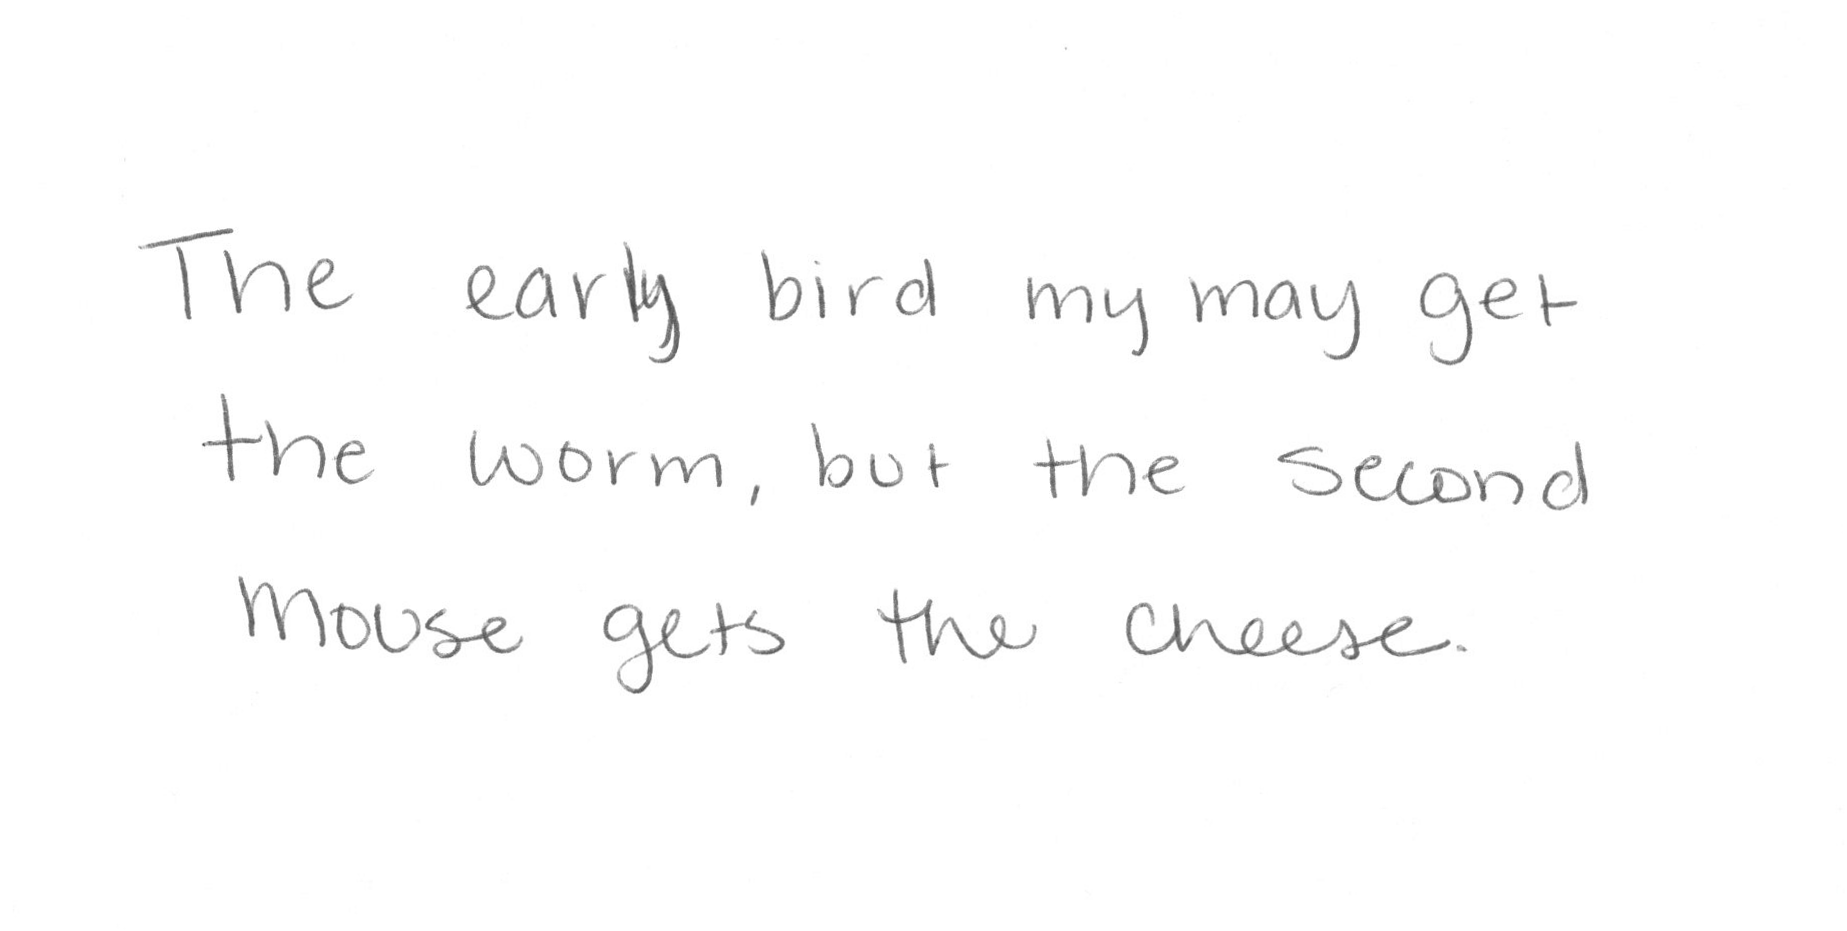 The early bird my may get
the worm, but the second
mouse gets the cheese.